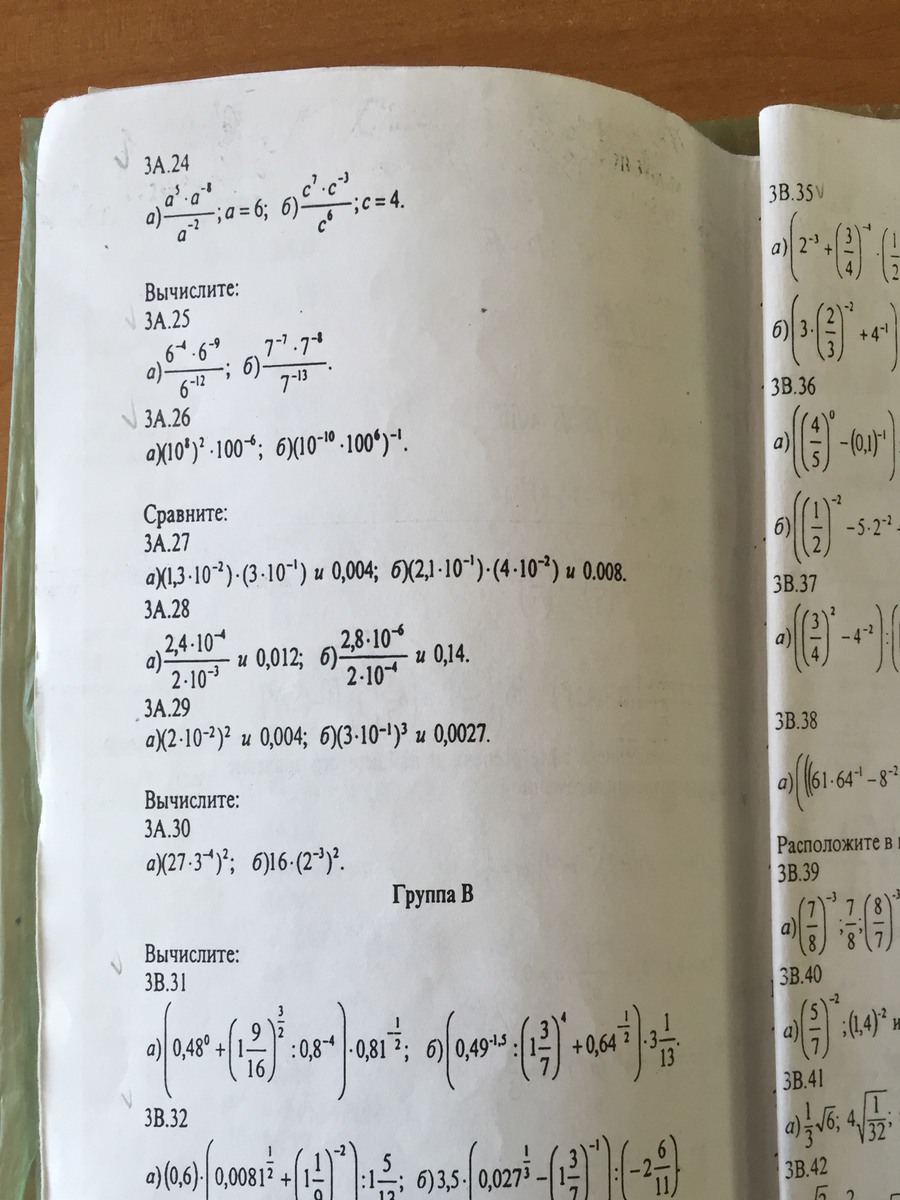 3A.24
а) (a⁵·a⁻⁸)/a⁻²; a = 6; б) (c⁷·c⁻³)/c⁶; c = 4.
Вычислите:
3A.25
а) (6⁻⁴·6⁻⁹)/6⁻¹²; б) (7⁻⁷·7⁻⁸)/7⁻¹³.
3A.26
а)(10⁸)²·100⁻⁶; б)(10⁻¹⁰·100⁶)⁻¹.
Сравните:
3A.27
а)(1,3·10⁻²)·(3·10⁻¹) и 0,004; б)(2,1·10⁻¹)·(4·10⁻²) и 0.008.
3A.28
а) (2,4·10⁻⁴)/(2·10⁻³) и 0,012; б) (2,8·10⁻⁶)/(2·10⁻⁴) и 0,14.
3A.29
а)(2·10⁻²)² и 0,004; б)(3·10⁻¹)³ и 0,0027.
Вычислите:
3A.30
а)(27·3⁻⁴)²; б)16·(2⁻³)².
Группа В
Вычислите:
3B.31
а)(0,48⁰ + (1 9/16)^(3/2) : 0,8⁻⁴)·0,81^(-1/2); б)(0,49^(-1,5) : (1 3/7)⁴ + 0,64^(1/2))·3 1/13.
3B.32
а)(0,6)·(0,0081^(1/2) + (1 1/9)⁻²) : 1 5/13; б)3,5·(0,027^(1/3) − (1 3/7)⁻¹) : (−2 6/11)
3B.35
а)(2⁻³ + (3/4)⁻⁴·(1/2
б)(3·(2/3)⁻² + 4⁻¹)
3B.36
а)((4/5)⁰ − (0,1)⁻¹)
б)((1/2)⁻² − 5·2⁻²
3B.37
а)((3/4)² − 4⁻²) : (
3B.38
а)(((61·64⁻¹ − 8⁻²
Расположите в
3B.39
а)(7/8)⁻³; 7/8; (8/7)
3B.40
а)(5/7)⁻²; (1,4)⁻² и
3B.41
а) 1/3 √6; 4√(1/32);
3B.42